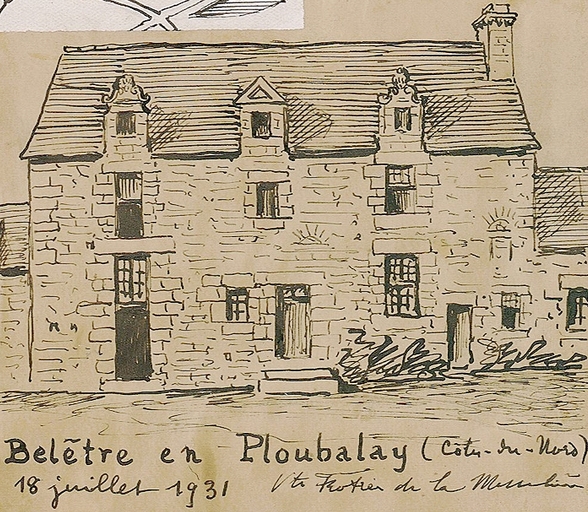 Belêtre en Ploubalay (Côtes-du-Nord)
18 juillet 1931 Vte Frotier de la Messelière